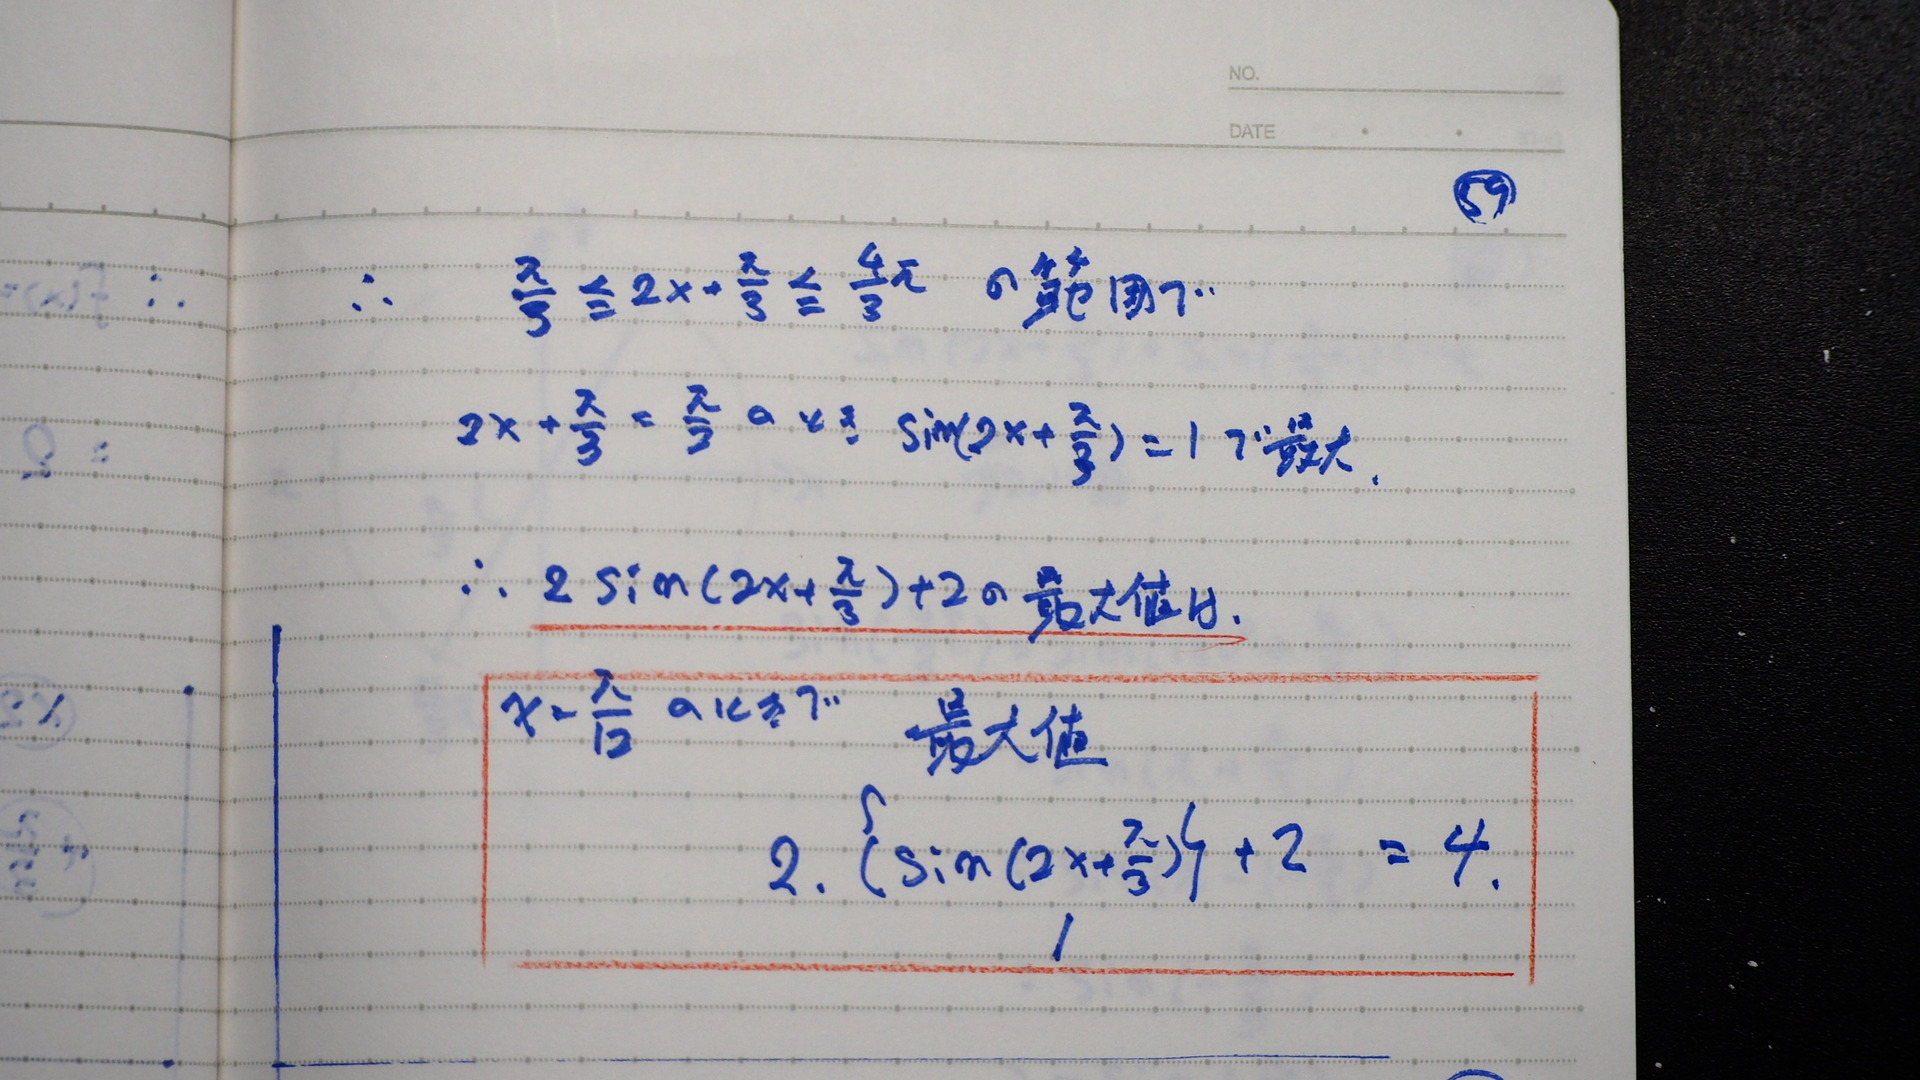 NO.
DATE
59
∴ π/3 ≦ 2x + π/3 ≦ 4/3 π の範囲で
2x + π/3 = π/2 のとき sin(2x + π/3) = 1 で最大.
∴ 2 sin(2x + π/3) + 2 の最大値は.
x = π/12 のときで 最大値
2. {sin(2x + π/3)} + 2 = 4.
1